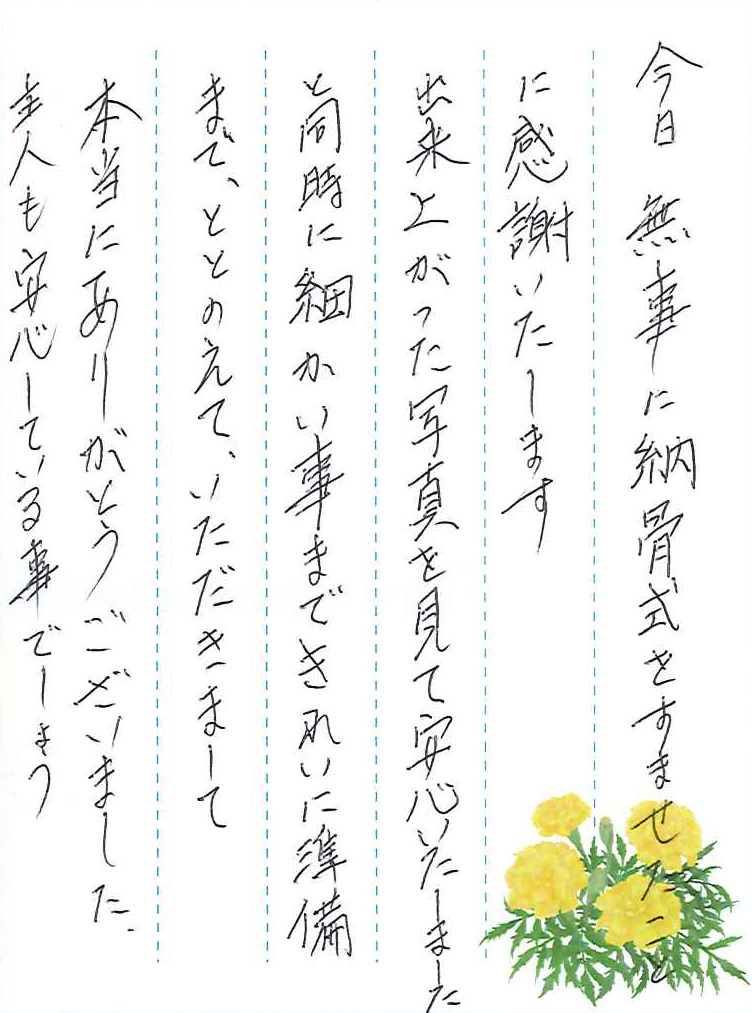 今日 無事に納骨式をすませたこと
に感謝いたします
出来上がった写真を見て安心いたしました
と同時に細かい事まできれいに準備
まで、ととのえて、いただきまして
本当にありがとうございました.
主人も安心している事でしょう